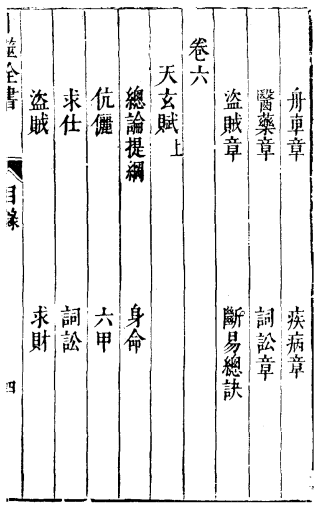 舟車章 疾病章
醫藥章 詞訟章
盜賊章 斷易總訣
卷六
天玄賦上
總論提綱 身命
伉儷 六甲
求仕 詞訟
盜賊 求財
全書 目錄 四